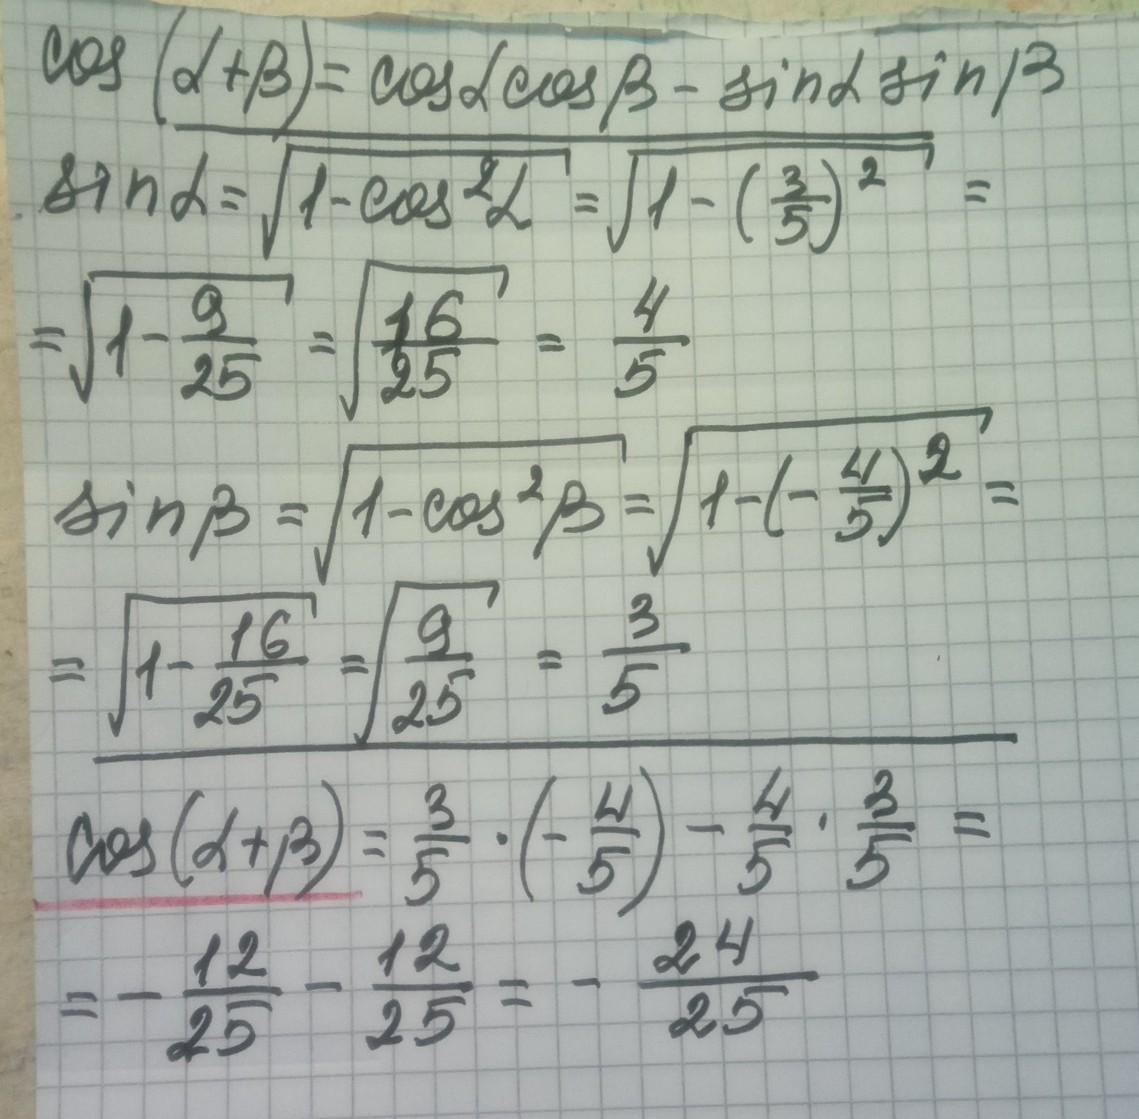 cos(α+β)=cosαcosβ-sinαsinβ
sinα=√(1-cos²α)=√(1-(3/5)²)=
=√(1-9/25)=√(16/25)=4/5
sinβ=√(1-cos²β)=√(1-(-4/5)²)=
=√(1-16/25)=√(9/25)=3/5
cos(α+β)=3/5·(-4/5)-4/5·3/5=
=-12/25-12/25=-24/25